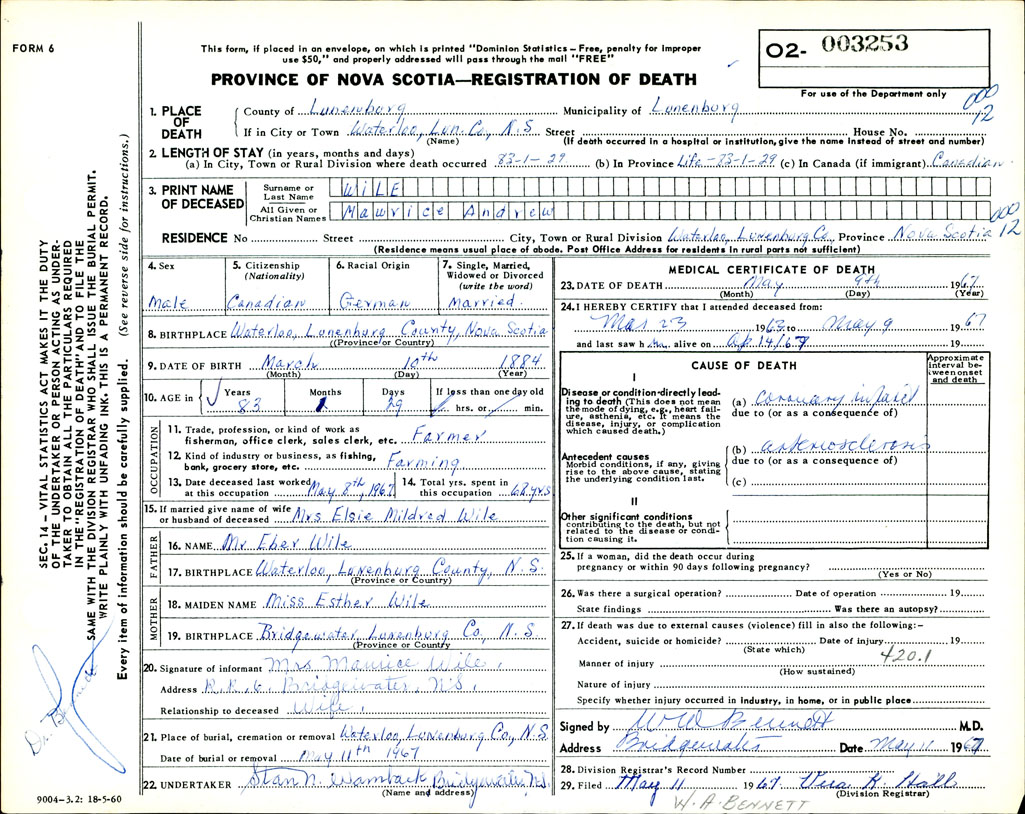 FORM 6
This form, if placed in an envelope, on which is printed "Dominion Statistics – Free, penalty for improper
use $50," and properly addressed will pass through the mail "FREE"
O2- 003253
PROVINCE OF NOVA SCOTIA—REGISTRATION OF DEATH
For use of the Department only
000
12
1. PLACE OF DEATH County of Lunenburg Municipality of Lunenburg
If in City or Town Waterloo, Lun. Co., N.S. Street House No.
(Name) (If death occurred in a hospital or institution, give the name instead of street and number)
2. LENGTH OF STAY (in years, months and days)
(a) In City, Town or Rural Division where death occurred 83-1-29 (b) In Province Life-83-1-29 (c) In Canada (if immigrant) Canadian
3. PRINT NAME OF DECEASED
Surname or Last Name WILE
All Given or Christian Names Mawrice Andrew
000
12
RESIDENCE No Street City, Town or Rural Division Waterloo, Lunenburg Co. Province Nova Scotia
(Residence means usual place of abode. Post Office Address for residents in rural parts not sufficient)
4. Sex 5. Citizenship (Nationality) 6. Racial Origin 7. Single, Married, Widowed or Divorced (write the word)
Male Canadian German Married.
8. BIRTHPLACE Waterloo, Lunenburg County, Nova Scotia
(Province or County)
9. DATE OF BIRTH March 10th 1884
(Month) (Day) (Year)
10. AGE in Years Months Days If less than one day old
83 1 29 hrs. or min.
OCCUPATION
11. Trade, profession, or kind of work as
fisherman, office clerk, sales clerk, etc. Farmer
12. Kind of industry or business, as fishing,
bank, grocery store, etc. Farming
13. Date deceased last worked at this occupation May 8th, 1967 14. Total yrs. spent in this occupation 68 yrs
15. If married give name of wife
or husband of deceased Mrs Elsie Mildred Wile
FATHER
16. NAME Mr Eber Wile
17. BIRTHPLACE Waterloo, Lunenburg County, N.S.
(Province or Country)
MOTHER
18. MAIDEN NAME Miss Esther Wile
19. BIRTHPLACE Bridgewater, Lunenburg Co, N.S.
(Province or Country)
20. Signature of informant Mrs Maurice Wile,
Address R.R. 6, Bridgewater, N.S.,
Relationship to deceased Wife,
21. Place of burial, cremation or removal Waterloo, Lunenburg Co., N.S
Date of burial or removal May 11th 1967
22. UNDERTAKER Stan N. Wamback, Bridgewater, N.S.
(Name and address)
9004-3.2: 18-5-60
MEDICAL CERTIFICATE OF DEATH
23. DATE OF DEATH May 9th 1967
(Month) (Day) (Year)
24. I HEREBY CERTIFY that I attended deceased from:
Mar 23 1963 to May 9 1967
and last saw h alive on Ap 14/67 19
CAUSE OF DEATH
Approximate interval between onset and death
I
Disease or condition directly leading to death (This does not mean the mode of dying, e.g., heart failure, asthenia, etc. It means the disease, injury, or complication which caused death.)
(a) coronary infarct
due to (or as a consequence of)
Antecedent causes
Morbid conditions, if any, giving rise to the above cause, stating the underlying condition last.
(b) arteriosclerosis
due to (or as a consequence of)
(c)
II
Other significant conditions
contributing to the death, but not related to the disease or condition causing it.
25. If a woman, did the death occur during
pregnancy or within 90 days following pregnancy?
(Yes or No)
26. Was there a surgical operation? Date of operation 19
State findings Was there an autopsy?
27. If death was due to external causes (violence) fill in also the following:–
Accident, suicide or homicide? Date of injury 19
(State which)
420.1
Manner of injury
(How sustained)
Nature of injury
Specify whether injury occurred in industry, in home, or in public place
Signed by W A Bennett M.D.
Address Bridgewater Date May 11 1967
28. Division Registrar's Record Number
29. Filed May 11 1967 Vera K. Hall
(Division Registrar)
W. A. BENNETT
SEC. 14 – VITAL STATISTICS ACT MAKES IT THE DUTY
OF THE UNDERTAKER OR PERSON ACTING AS UNDER-
TAKER TO OBTAIN ALL THE PARTICULARS REQUIRED
IN THE "REGISTRATION OF DEATH" AND TO FILE THE
SAME WITH THE DIVISION REGISTRAR WHO SHALL ISSUE THE BURIAL PERMIT.
WRITE PLAINLY WITH UNFADING INK. THIS IS A PERMANENT RECORD.
Every item of information should be carefully supplied. (See reverse side for instructions.)